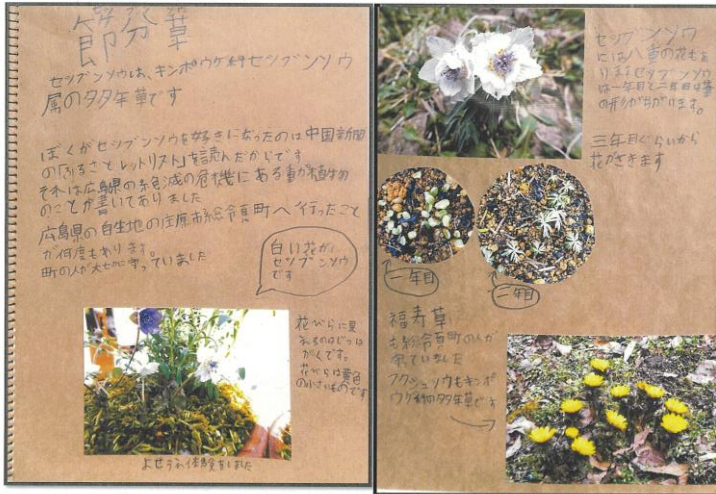 節分草
セツブンソウは、キンポウゲ科セツブンソウ
属の多年草です
ぼくがセツブンソウを好きになったのは中国新聞
の「ふるさとレットリスト」を読んだからです
それは広島県の絶滅の危機にある動植物
のことが書いてありました
広島県の自生地の庄原市総領町へ行ったこと
が何度もあります
町の人が大切に守っていました
白い花が
セツブンソウ
です
花びらに見
えるのはじつは
がくです。
花びらは黄色
の小さいものです
よせうえ体験をしました
セツブンソウ
には八重の花もあ
ります セツブンソウ
は一年目と二年目は葉
の形がちがいます。
三年目ぐらいから
花がさきます
一年目
二年目
福寿草
も総領町の人が
守っていました
フクジュソウもキンポ
ウゲ科の多年草です